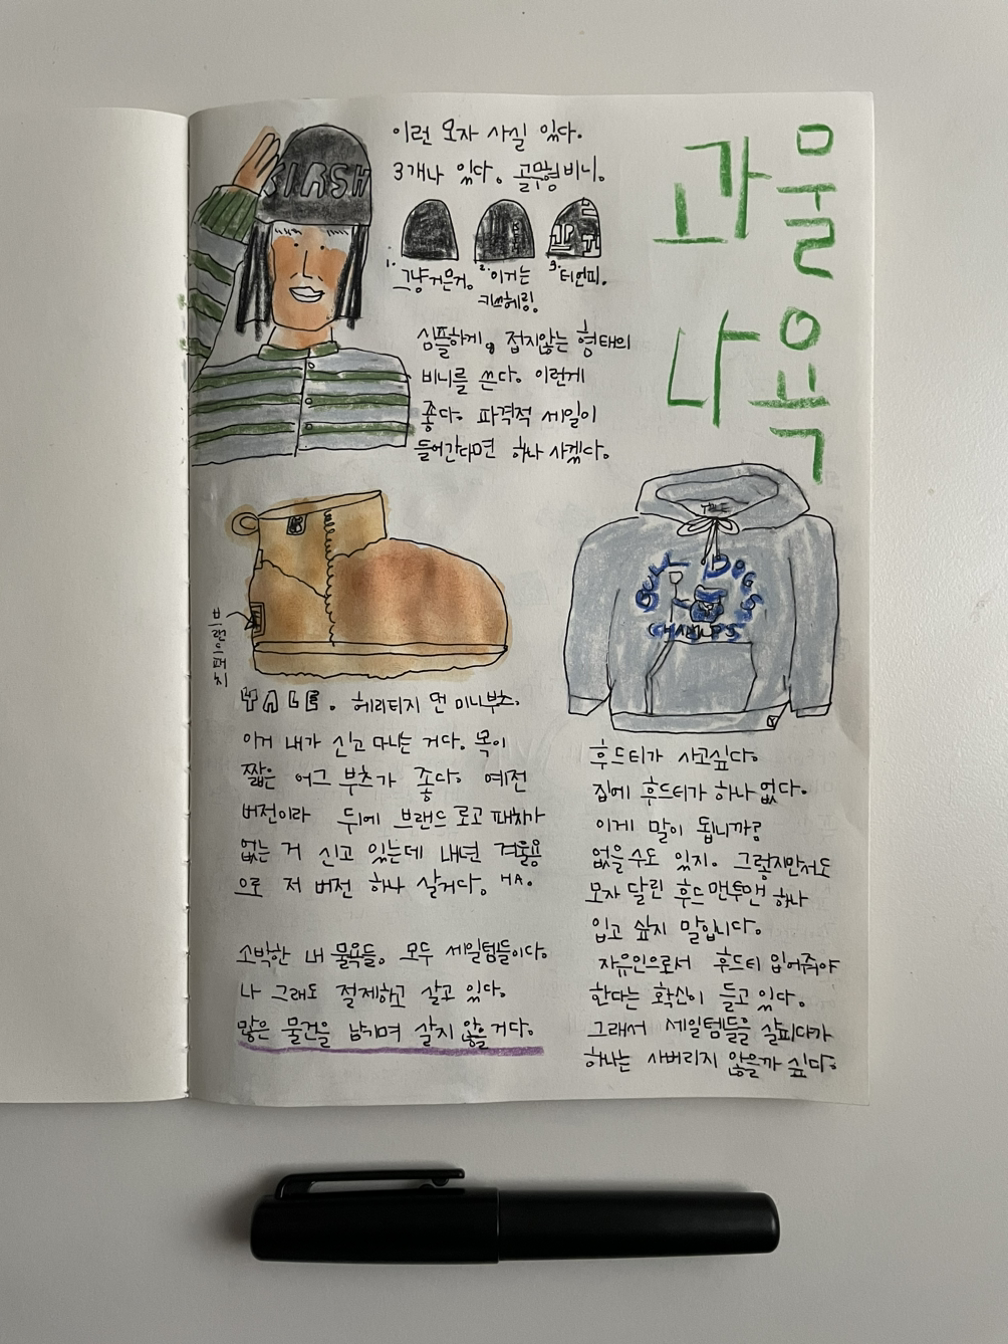 물욕과 나
이런 모자 사실 있다.
3개나 있다. 골무형비니.
1. 그냥 검은거.
2. 이거는
키쓰헤링.
3. 터언피.
심플하게, 접지않는 형태의
비니를 쓴다. 이런게
좋다. 파격적 세일이
들어간다면 하나 사겠다.
브랜드패치
YALE. 헤리티지 먼 미니부츠.
이거 내가 신고 다니는 거다. 목이
짧은 어그 부츠가 좋다. 예전
버전이라 뒤에 브랜드 로고 패치가
없는 거 신고 있는데 내년 겨울용
으로 저 버전 하나 살거다. HA.
소박한 내 물욕들. 모두 세일템들이다.
나 그래도 절제하고 살고 있다.
많은 물건을 남기며 살지 않을거다.
YALE
BULL DOGS
CHAMPS
후드티가 사고싶다.
집에 후드티가 하나 없다.
이게 말이 됩니까?
없을수도 있지. 그렇지만서도
모자 달린 후드 맨투맨 하나
입고 싶지 말입니다.
자유인으로서 후드티 입어줘야
한다는 확신이 들고 있다.
그래서 세일템들을 살피다가
하나는 사버리지 않을까 싶다.